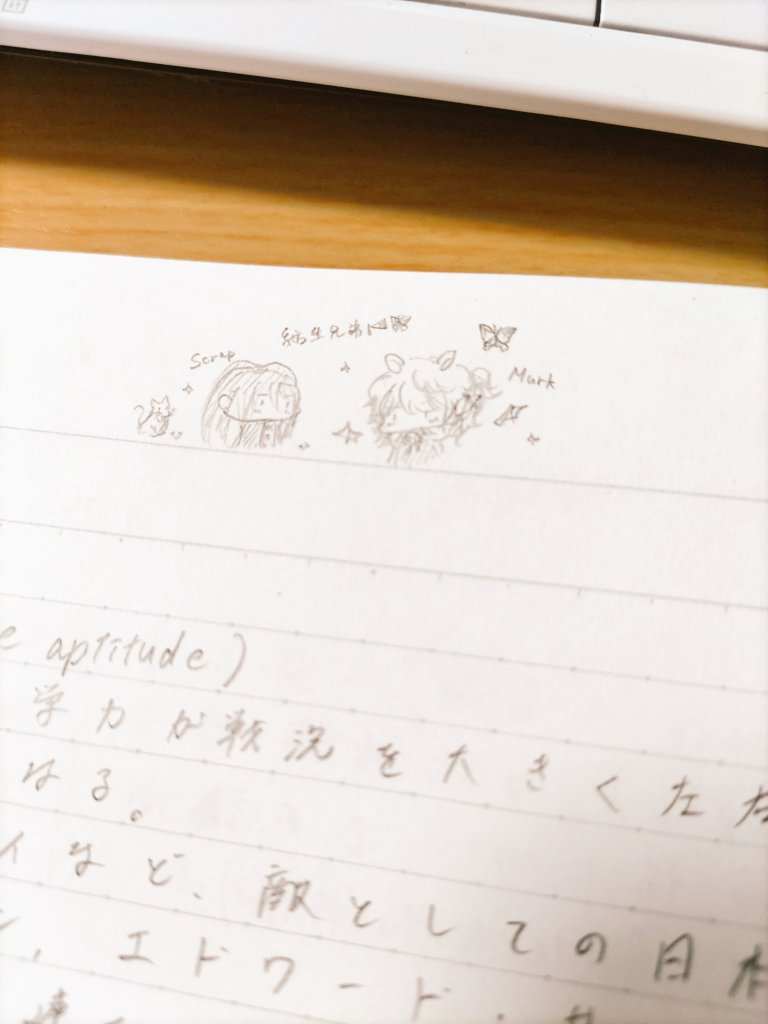 納生兄弟
Scrap
Mark
e aptitude)
学力が戦況を大きく左右
なる。
イなど、敵としての日本
ン、エドワード・サ